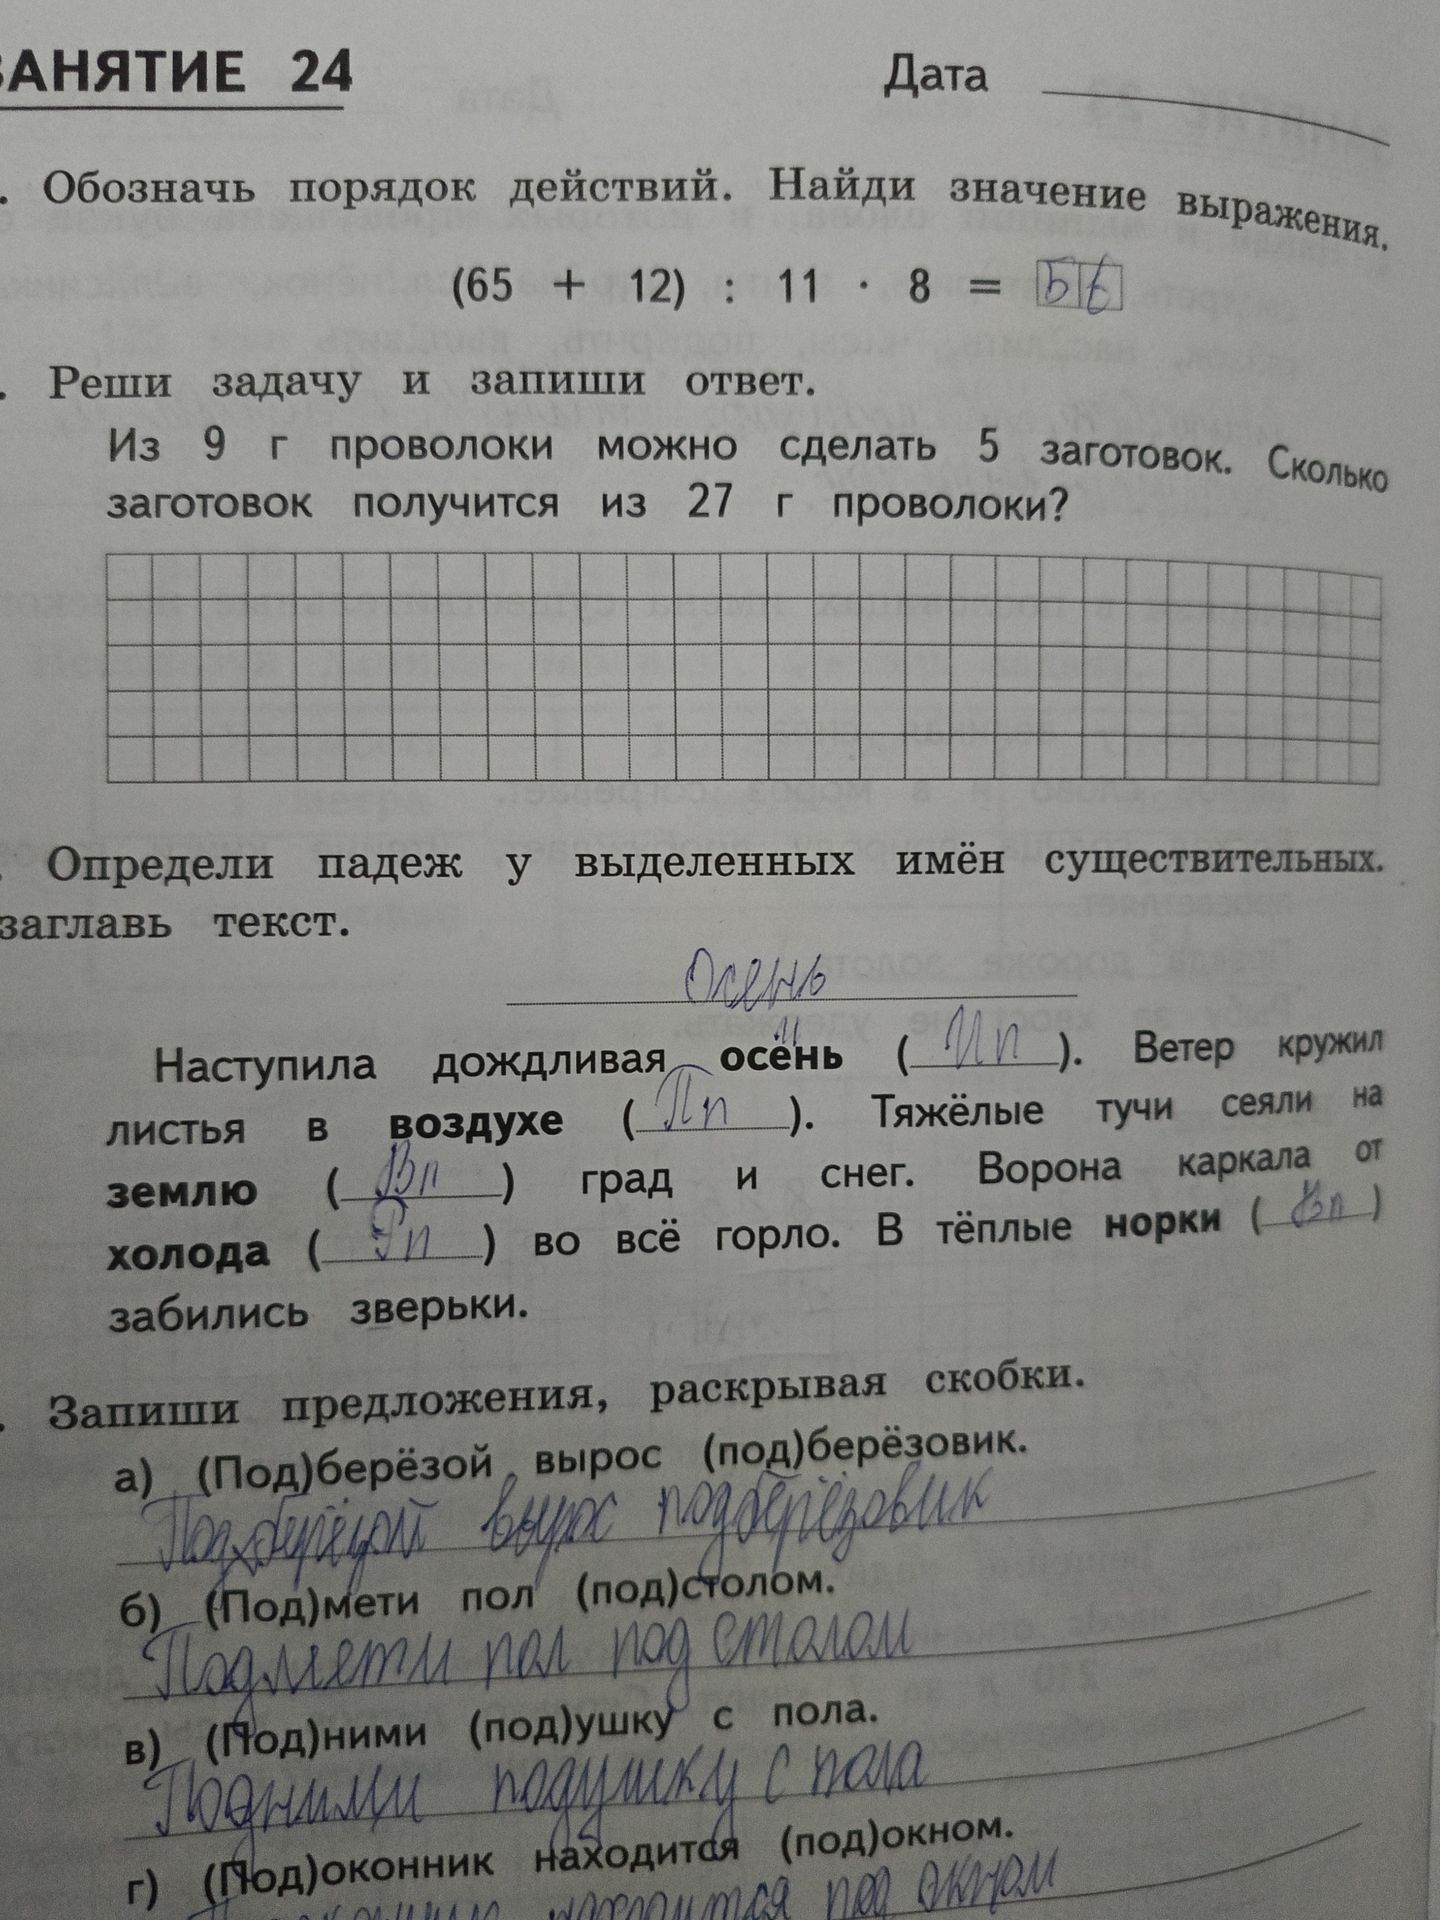 ЗАНЯТИЕ 24 Дата
. Обозначь порядок действий. Найди значение выражения.
(65 + 12) : 11 · 8 = 56
. Реши задачу и запиши ответ.
Из 9 г проволоки можно сделать 5 заготовок. Сколько
заготовок получится из 27 г проволоки?
. Определи падеж у выделенных имён существительных.
заглавь текст.
Осень
Наступила дождливая осень (Ип). Ветер кружил
листья в воздухе (Пп). Тяжёлые тучи сеяли на
землю (Вп) град и снег. Ворона каркала от
холода (Рп) во всё горло. В тёплые норки (Вп)
забились зверьки.
. Запиши предложения, раскрывая скобки.
а) (Под)берёзой вырос (под)берёзовик.
Под берёзой вырос подберёзовик
б) (Под)мети пол (под)столом.
Подмети пол под столом
в) (Под)ними (под)ушку с пола.
Подними подушку с пола
г) (Под)оконник находится (под)окном.
находится под окном